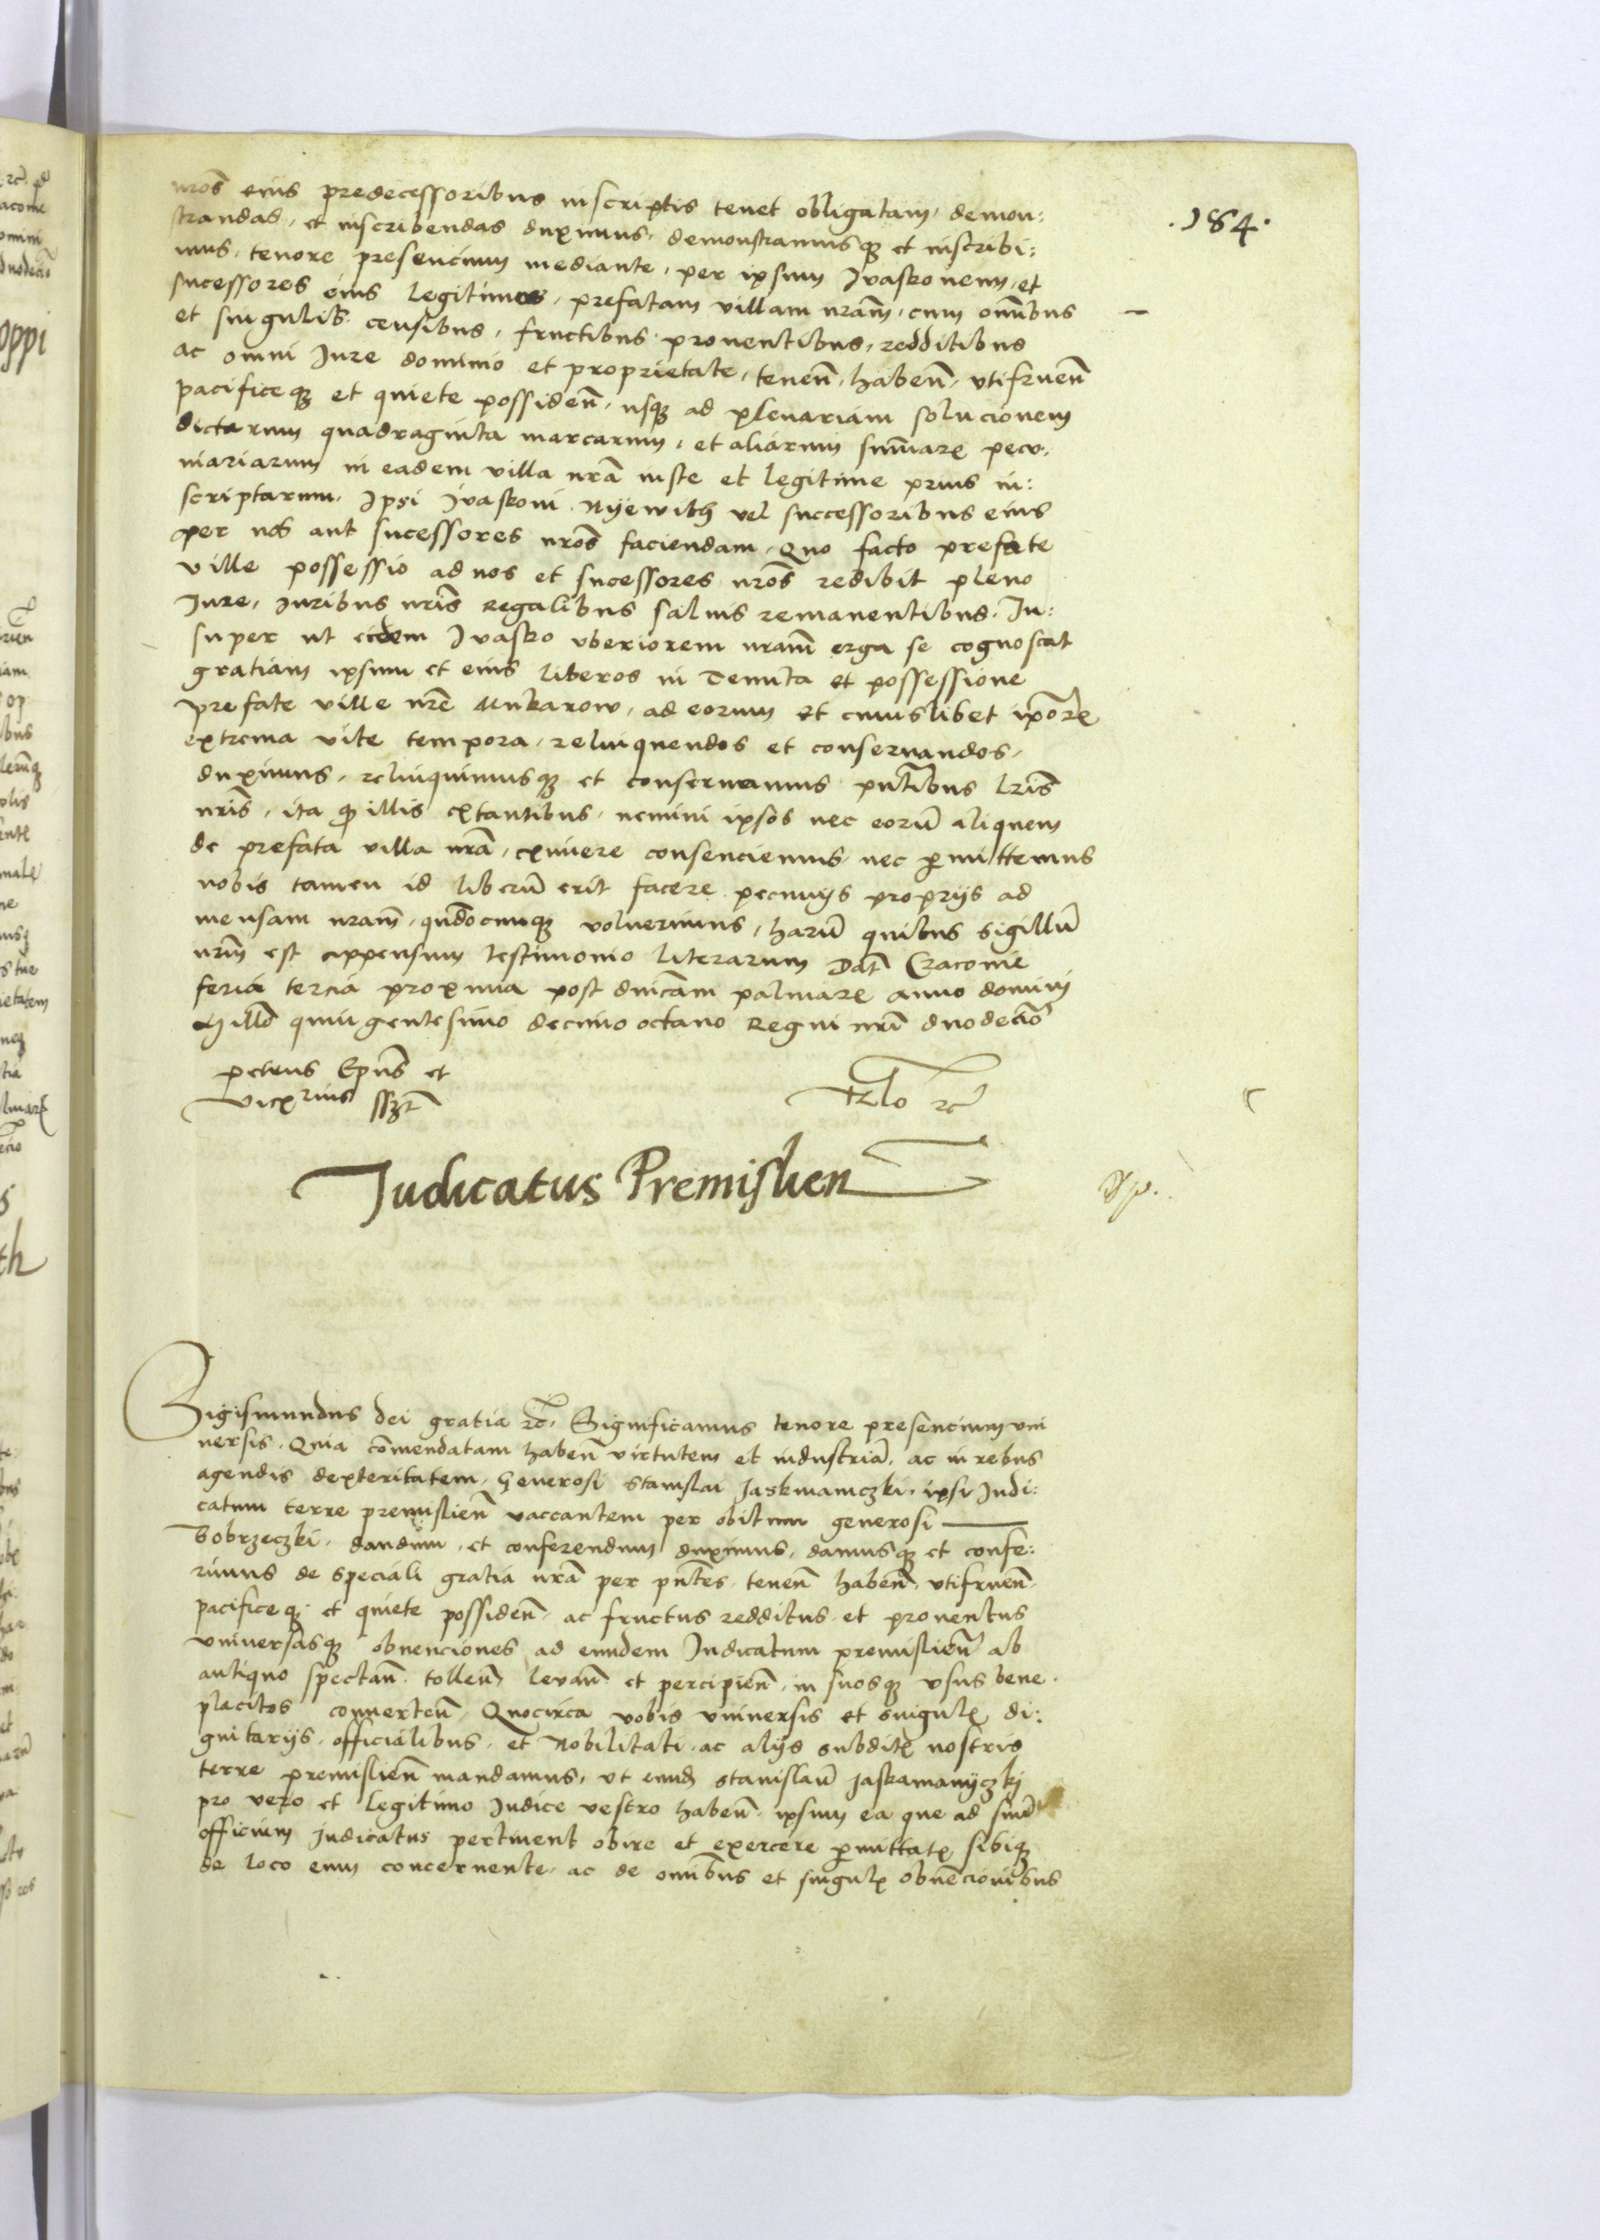 .184.
nrōs eius predecessoribus inscriptis tenet obligatam, demon:
strandas, et inscribendas duximus, demonstramusqȝ et inscribi:
mus, tenore presencium mediante, per ipsum Ivaskonem, et
sucessores eius legitimos, prefatam villam nrām, cum omībus
et singulis censibus, fructibus proventibus, redditibus
ac omni Jure dominio et proprietate, tenen̄, haben̄, utifruen̄
pacificeqȝ et quiete possiden̄, usqȝ ad plenariam solucionem
dictarum quadraginta marcarum, et aliarum sum̄arꝝ pecu,
niariarum in eadem villa nrā iuste et legitime prius in:
scriptarum, Ipsi Ivaskoni Nyewith vel successoribus eius
per nos aut sucessores nrōs faciendam, Quo facto prefate
ville possessio ad nos et sucessores nrōs redibit pleno
Jure, Juribus nrīs Regalibus salvis remanentibus. In:
super ut eidem Ivasko uberiorem nram̄ erga se cognoscat
gratiam ipsum et eius liberos in Tenuta et possessione
prefate ville nrē Munkarow, ad eorum et cuiuslibet ipōrꝝ
extrema vite tempora, relinquendos et conservandos,
duximus, relinquimusqȝ et conservamus pn̄tibus lrīs
nrīs, ita ꝙ illis extantibus, nemini ipsos nec eorū aliquem
de prefata villa nrā, eximere consenciemus, nec ꝑmittemus
nobis tamen id liberū erit facere pecuniis proprijs ad
mensam nram̄, qn̄documqȝ voluerimus, harū quibus sigillū
nrm̄ est appensum testimonio literarum Dat̄ Cracovie
feria tercia proxima post dn̄icam palmarꝝ anno domini
Millō quingentesimo decimo octavo Regni nrī duodecīo
Petrus Epūs et
vicꝝrius sszt̄
Rlo rc̄
Judicatus Premislien
Sigismundus dei gratia rc̄. Significamus tenore presencium uni
versis, Quia cōmendatam haben̄ virtutem et industriā, ac in rebus
agendis dexteritatem, Generosi Stanislai Jaskmaniczki, ipsi Judi:
catum terre premislien̄ vaccantem per obitum generosi ———
Bobrzeczki, dandum, et conferendum duximus, damusqȝ et confe:
rimus de speciali gratia nrā per pn̄tes, tenen̄ haben̄, utifruen̄
pacificeqȝ et quiete possiden̄, ac fructus redditus et proventus
universasqȝ obvenciones ad eundem Judicatum premislien̄ ab
antiquo spectan̄ tollen̄, levan̄ et percipien̄, in suosqȝ usus bene
placitos converten̄, Quocirca vobis universis et singulꝭ di:
gnitarijs, officialibus, et Nobilitati, ac alijs subditꝭ nostris
terre premislien̄ mandamus, ut eundꝫ Stanislaū Jaskmanyczki
pro vero et legitimo Judice vestro haben̄, ipsum ea que ad suū
officium judicatus pertinent obire et exercere ꝑmittatꝭ sibiqȝ
de loco eum concernente, ac de omībus et singulꝭ obvēcionibus